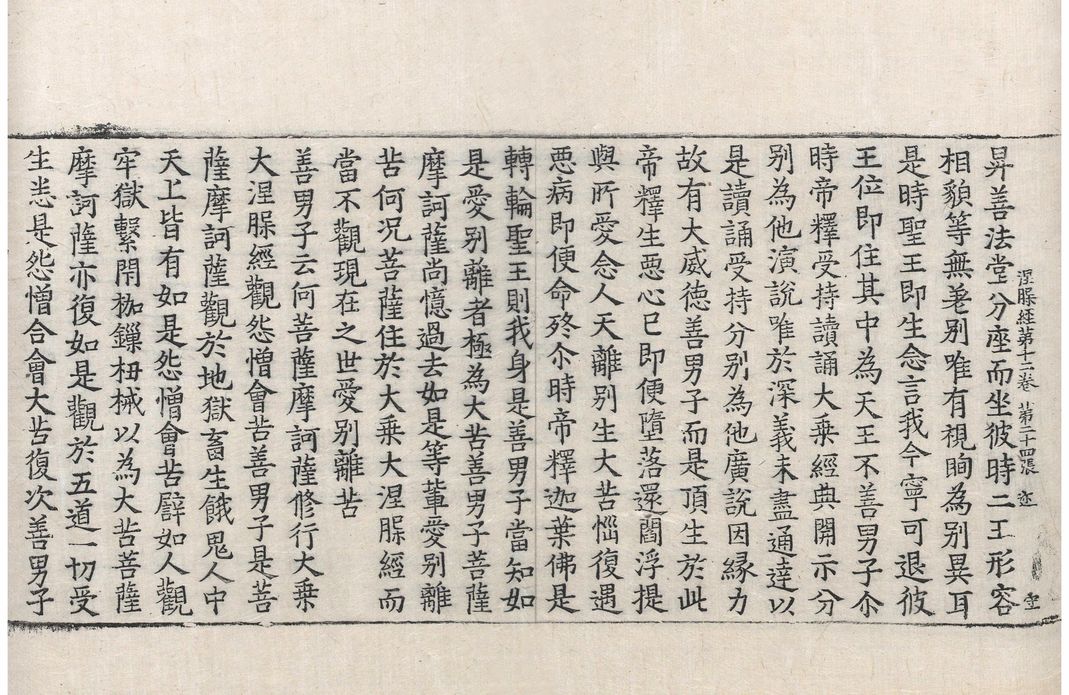 昇善法堂分座而坐彼時二王形容
涅槃経苐十二卷 苐二十四張 迩
相貌等無差别唯有視眴為别異耳
是時聖王即生念言我今寧可退彼
王位即住其中為天王不善男子尒
時帝釋受持讀誦大乘經典開示分
别為他演說唯於深義未盡通達以
是讀誦受持分别為他廣說因縁力
故有大威徳善男子而是頂生於此
帝釋生惡心已即便墮落還閻浮提
與所愛念人天離别生大苦惱復遇
惡病即便命終尒時帝釋迦葉佛是
轉輪聖王則我身是善男子當知如
是愛别離者極為大苦善男子菩薩
摩訶薩尚憶過去如是等軰愛别離
苦何况菩薩住於大乘大涅槃經而
當不觀現在之世愛别離苦
善男子云何菩薩摩訶薩修行大乘
大涅槃經觀怨憎會苦善男子是菩
薩摩訶薩觀於地獄畜生餓鬼人中
天上皆有如是怨憎會苦譬如人觀
牢獄繫閇枷鏁杻械以為大苦菩薩
摩訶薩亦復如是觀於五道一切受
生悉是怨憎合會大苦復次善男子